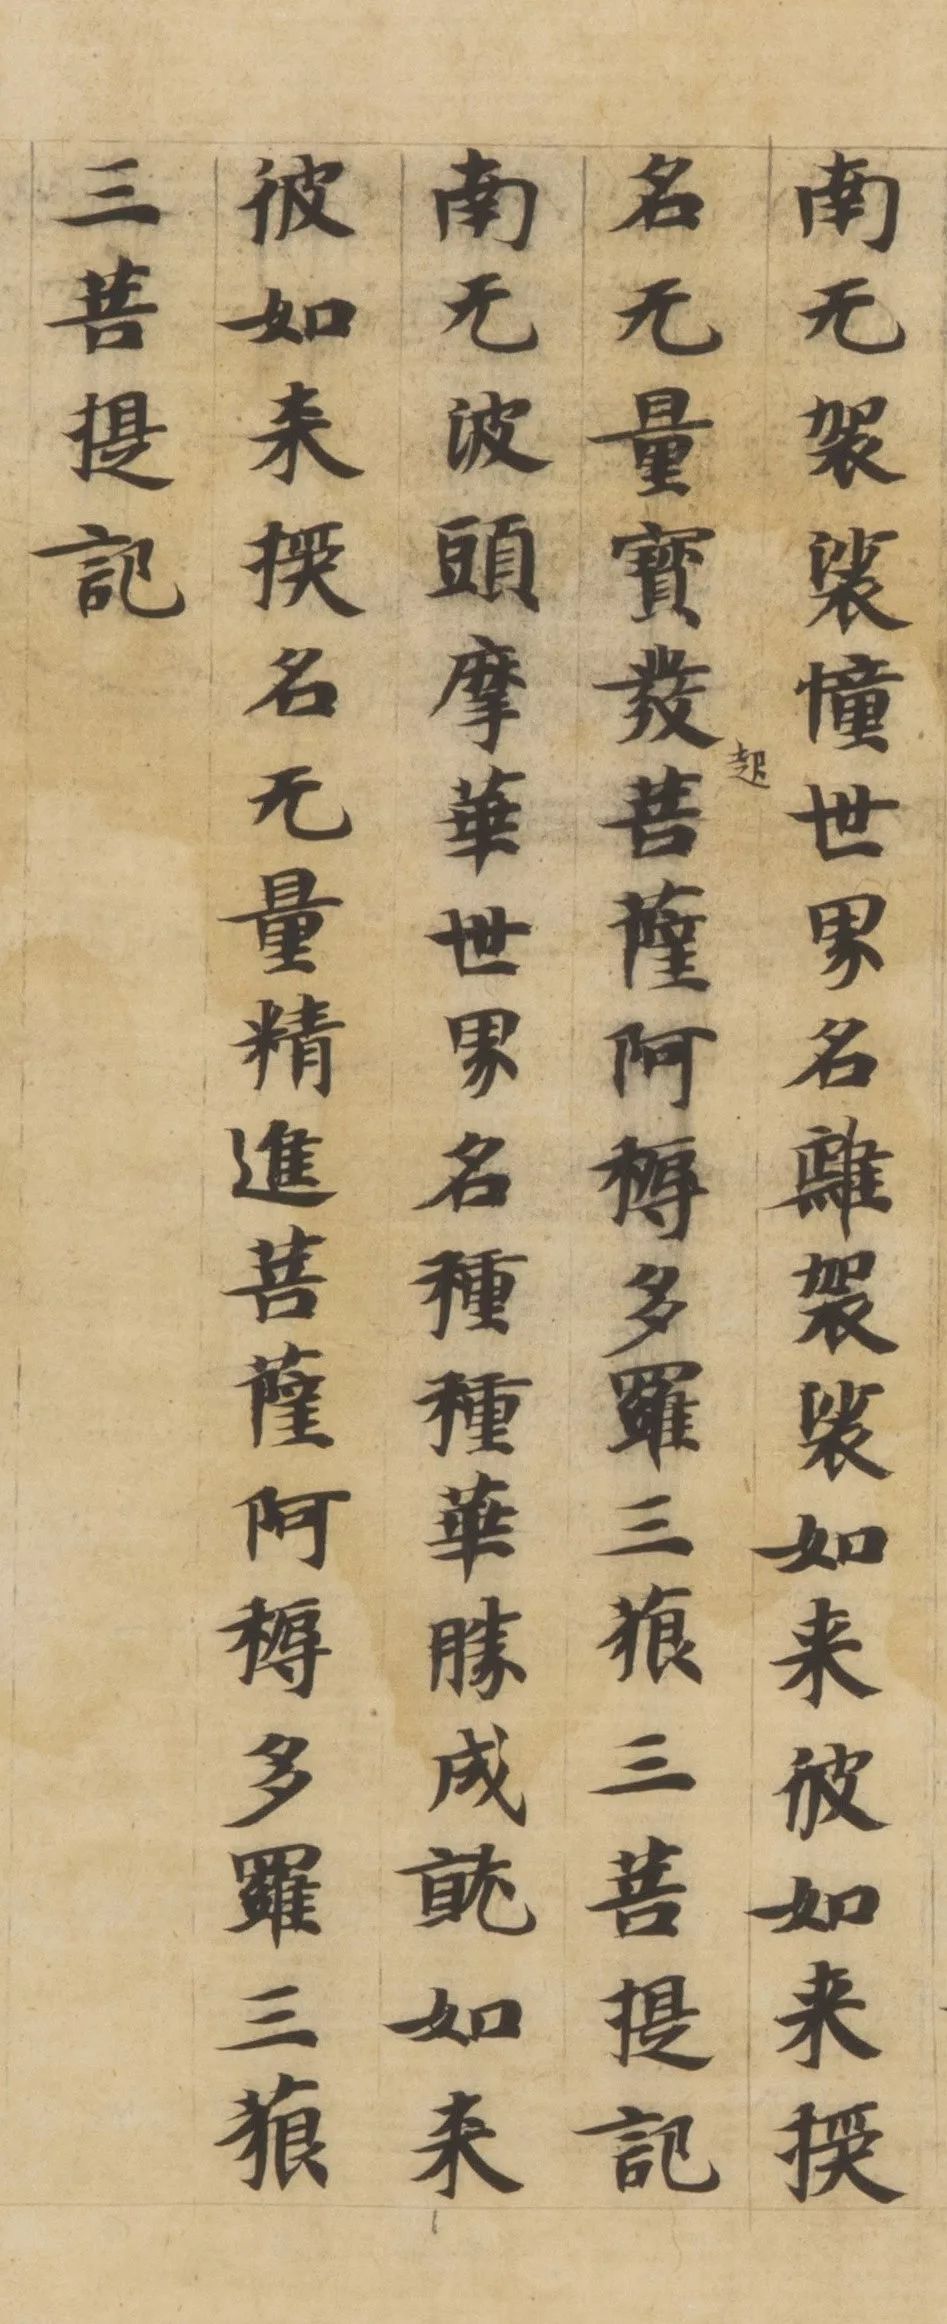 南无袈裟憧世界名離袈裟如来彼如来授
名无量寶發起菩薩阿耨多羅三藐三菩提記
南无波頭摩華世界名種種華勝成就如来
彼如来授名无量精進菩薩阿耨多羅三藐
三菩提記